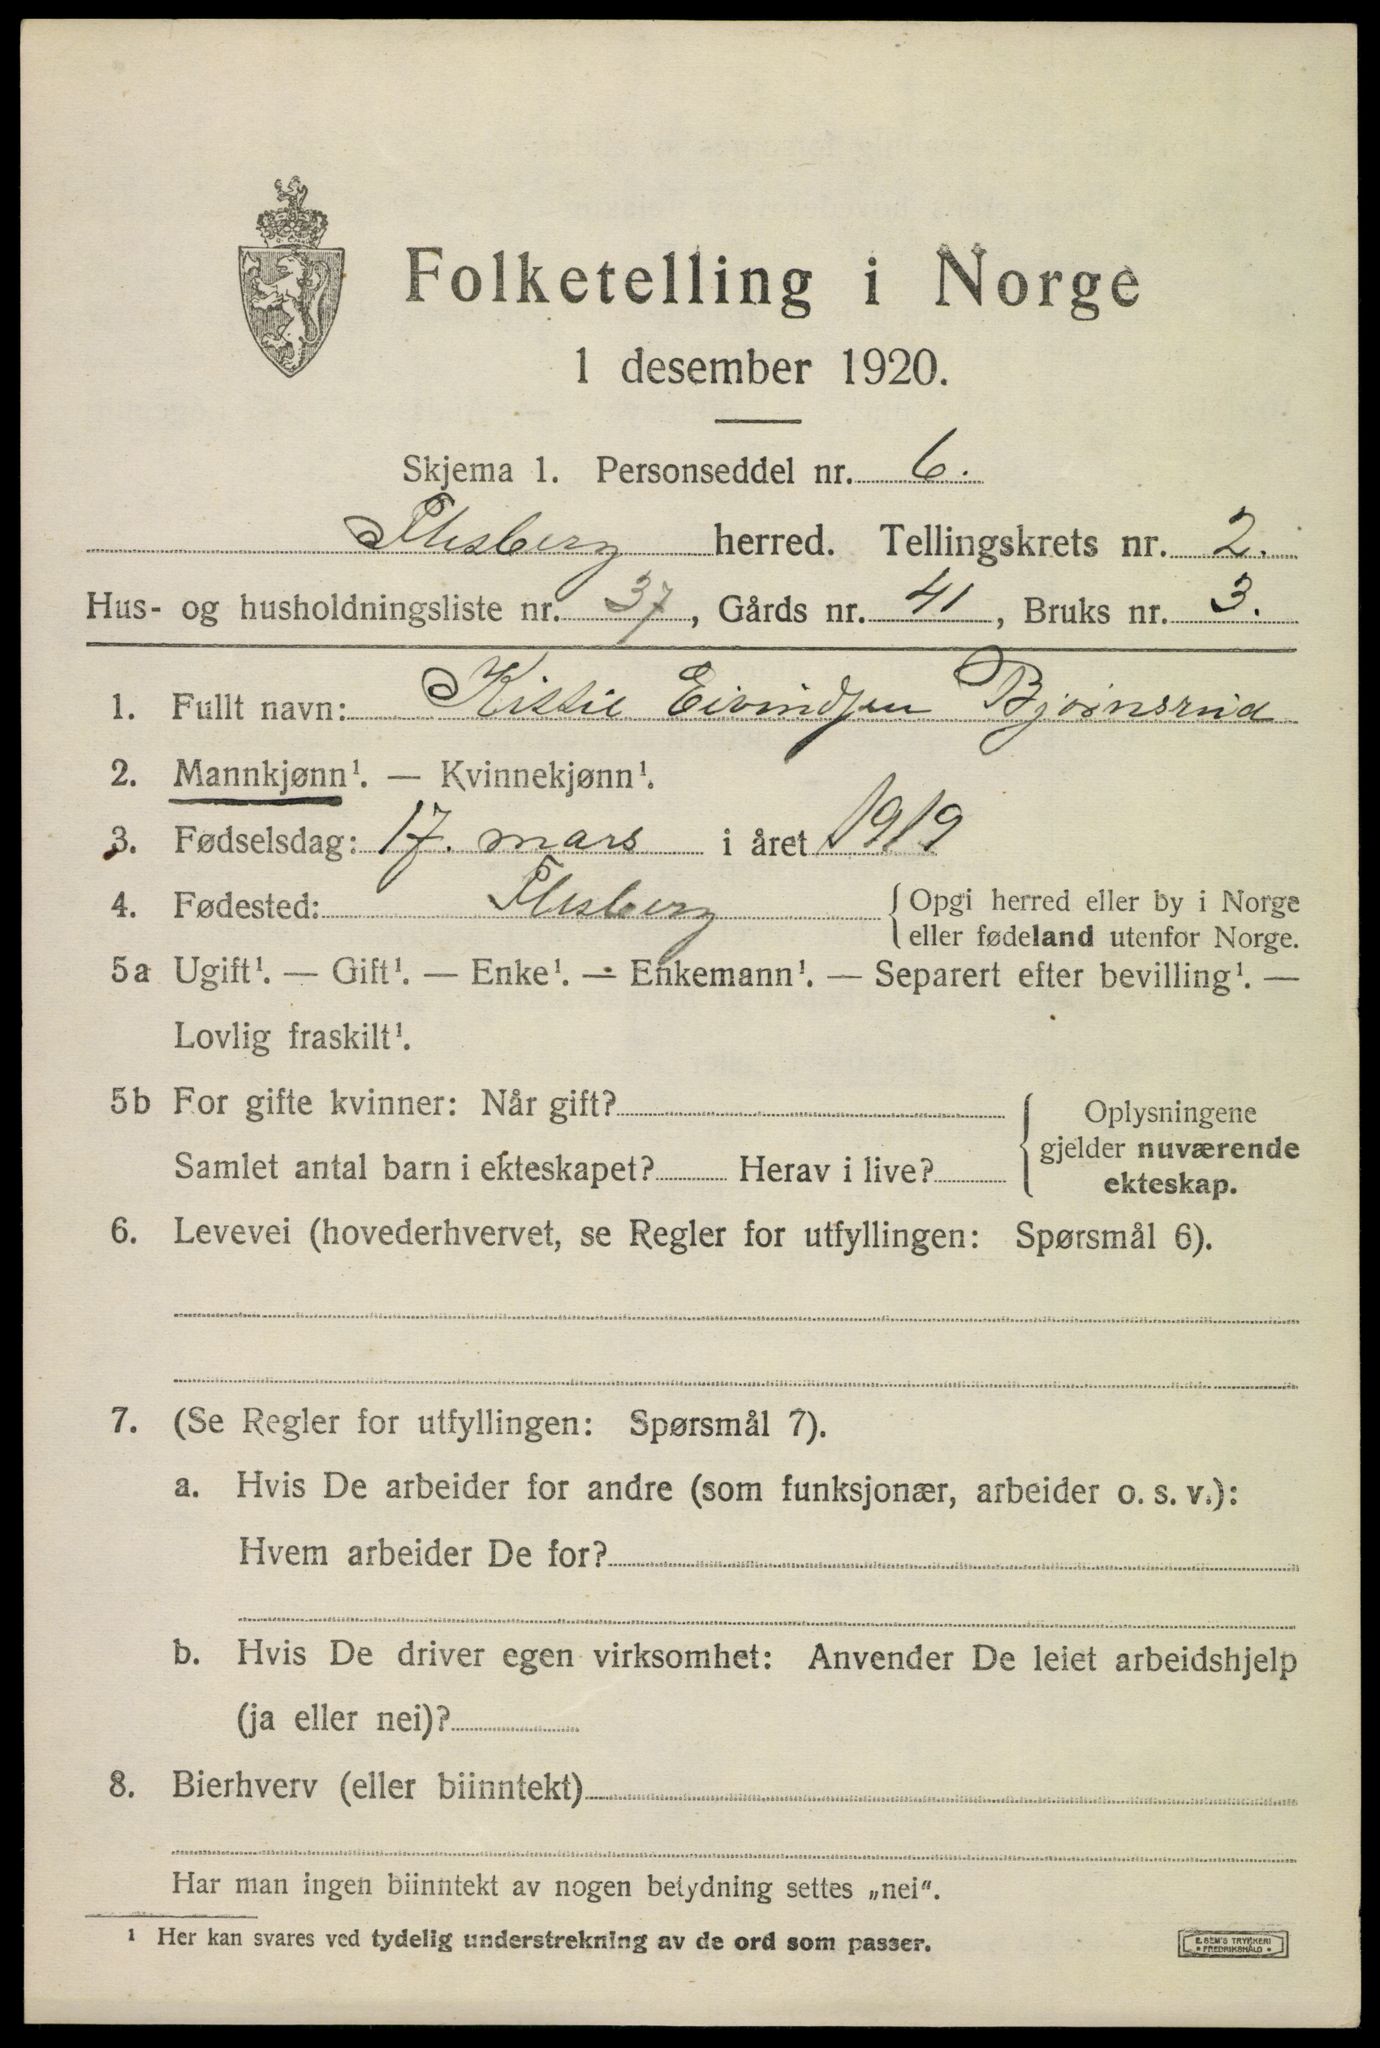 Folketelling i Norge
1 desember 1920.
Skjema 1. Personseddel nr. 6.
Flesberg herred. Tellingskrets nr. 2.
Hus- og husholdningsliste nr. 37, Gårds nr. 41, Bruks nr. 3.
1. Fullt navn: Kittil Eivindsen Bjørnsrud
2. Mannkjønn¹. — Kvinnekjønn¹.
3. Fødselsdag: 17. mars i året 1919
4. Fødested: Flesberg { Opgi herred eller by i Norge
eller fødeland utenfor Norge.
5a Ugift¹. — Gift¹. — Enke¹. — Enkemann¹. — Separert efter bevilling¹. —
Lovlig fraskilt¹.
5b For gifte kvinner: Når gift? { Oplysningene
gjelder nuværende
Samlet antal barn i ekteskapet? Herav i live? ekteskap.
6. Levevei (hovederhvervet, se Regler for utfyllingen: Spørsmål 6).
7. (Se Regler for utfyllingen: Spørsmål 7).
a. Hvis De arbeider for andre (som funksjonær, arbeider o. s. v.):
Hvem arbeider De for?
b. Hvis De driver egen virksomhet: Anvender De leiet arbeidshjelp
(ja eller nei)?
8. Bierhverv (eller biinntekt)
Har man ingen biinntekt av nogen betydning settes „nei“.
¹ Her kan svares ved tydelig understrekning av de ord som passer.
E. SEM'S TRYKKERI
FREDRIKSHALD